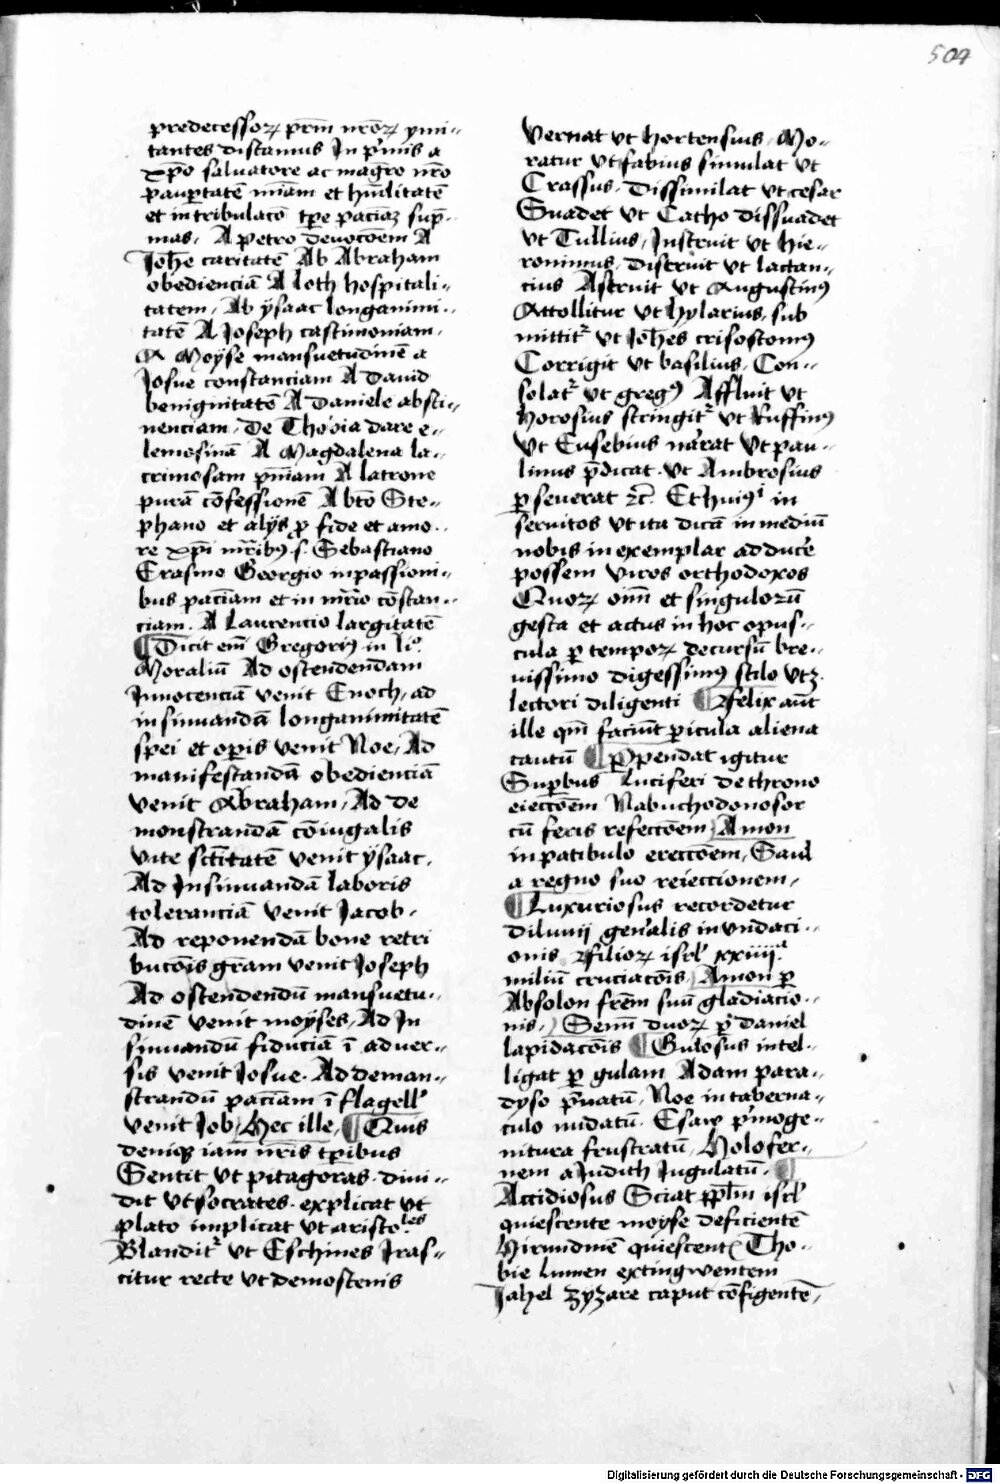 504
predecessoꝝ prm̄ nr̄oꝝ ymi-
tantes discamus In p'mis a
xp̄o salvatore ac maḡro nr̄o
paup̱tatē miam̄ et hūilitatē
et in tribulacō tp̱e paciāz sup̄-
mas. A petro devocōem A
Joh̄e caritatē Ab Abraham
obedienciā A loth hospitali-
tatem, Ab ÿsaac longanimi-
tatē A Joseph castimoniam.
A Moÿse mansuetudinē a
Josue constanciam A david
benignitatē A daniele absti-
nenciam, De Thobia dare e-
lemosinā A Magdalena la-
crimosam pn̄iam A latrone
purā cōfessionē A btō Ste-
phano et alijs ꝓ fide et amo-
re xp̄i mr̄ibꝰ .s. Sebastiano
Erasmo Georgio in passioni-
bus paciam̄ et in mr̄io cōstan-
ciam. A Laurencio largitatē
¶ Dicit em̄ Gregoriꝰ in li°
Moraliū Ad ostendendam
Innocenciā venit Enoch, ad
insinuandā longanimitatē
spei et oꝑis venit Noe, Ad
manifestandā obedienciā
venit Abraham, Ad de
monstrandā cōiugalis
vite sctītatē venit ÿsaac.
Ad Insinuandā laboris
toleranciā venit Jacob.
Ad reponendā bone retri
bucōis gr̄am venit Joseph
Ad ostendendū mansuetu-
dinē venit moÿses, Ad In
sinuandū fiduciā ī adver-
sis venit Josue. Ad demon-
strandū paciam̄ ī flagell'
venit Job, Hec ille, ¶ Quis
deniqꝫ iam nr̄is tꝑibus
Sentit vt pitagoras. divi-
dit vt socrates. explicat vt
plato implicat vt aristo.les
Blandit² vt Eschines Iras-
citur recte vt demostenis
Vernat vt hortensius, Mo-
ratur vt fabius simulat vt
Crassus. Dissimilat vt cesar
Suadet vt Catho dissuadet
vt Tullius, Instruit vt hie-
ronimus, distruit vt lactan-
cius Astruit vt Augustinꝰ
Attollitur vt hylarius, sub
mittit² vt Joh̄es crisostomꝰ
Corrigit vt basilius, Con-
solat² vt gregꝰ Affluit vt
horosius stringit² vt Ruffinꝰ
vt Eusebius nar̄at vt pau-
linus p̄dicat. vt Ambrosius
ꝑseverat ⁊c̄. Et huiꝰⁱ in
servitos vt ita dicā in mediū
nobis in exemplar adducē
possem viros orthodoxos
Quoꝝ oīm et singulorū
gesta et actus in hoc opus-
cula ꝑ tempoꝝ decursū bre-
vissimo digessimꝰ stilo vtꝫ
lectori diligenti ¶ felix aūt
ille que faciūt ꝑicula aliena
cautū ¶ ꝑpendat igitur
Suꝑbus Luciferi de throno
eieccōem Nabuchodonosor
cū feris refeccōem, Amon
in patibulo ereccōem, Saul
a regno suo reieccionem,
¶ Luxuriosus recordetur
diluvij gen'alis in vndaci-
onis ⁊ filioꝝ isrl' xxiiijᵃ
miliū cruciacōis, Amon ꝑ
Absolon fr̄em suū gladiacio-
nis, Senū duoꝝ ꝑ daniel
lapidacōis ¶ Gulosus intel-
ligat ꝑ gulam Adam para-
dyso p'vatū, Noe in taberna-
culo nudatū. Esaw p'moge-
nitura frustratū, Holofer-
nem a Judith Jugulatū. ¶
Accidiosus Sciat pp̄lm isrl'
quiescente moyse deficientē
Hirundinē quiescent̄ Tho-
bie lumen extingwentem
Jahel zyzare caput cōfigentē,
Digitalisierung gefördert durch die Deutsche Forschungsgemeinschaft - DFG